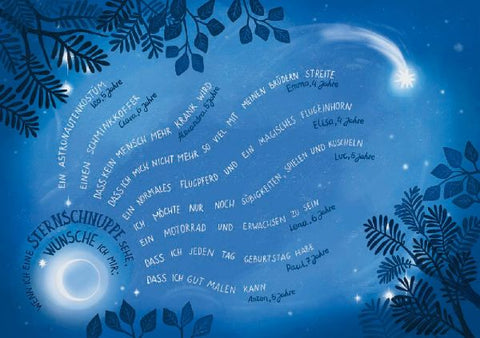 WENN ICH EINE
STERNSCHNUPPE SEHE,
WÜNSCHE ICH MIR:
EIN ASTRONAUTENKOSTÜM
5 Jahre
EINEN SCHMINKKOFFER
Clara, 6 Jahre
DASS KEIN MENSCH MEHR KRANK WIRD
Alexandra, 5 Jahre
DASS ICH MICH NICHT MEHR SO VIEL MIT MEINEN BRÜDERN STREITE
Emma, 4 Jahre
EIN NORMALES FLUGPFERD UND EIN MAGISCHES FLUGEINHORN
Elisa, 4 Jahre
ICH MÖCHTE NUR NOCH SÜßIGKEITEN, SPIELEN UND KUSCHELN
Luc, 5 Jahre
EIN MOTORRAD UND ERWACHSEN ZU SEIN
Lena, 6 Jahre
DASS ICH JEDEN TAG GEBURTSTAG HABE
Paul, 7 Jahre
DASS ICH GUT MALEN KANN
Anton, 5 Jahre